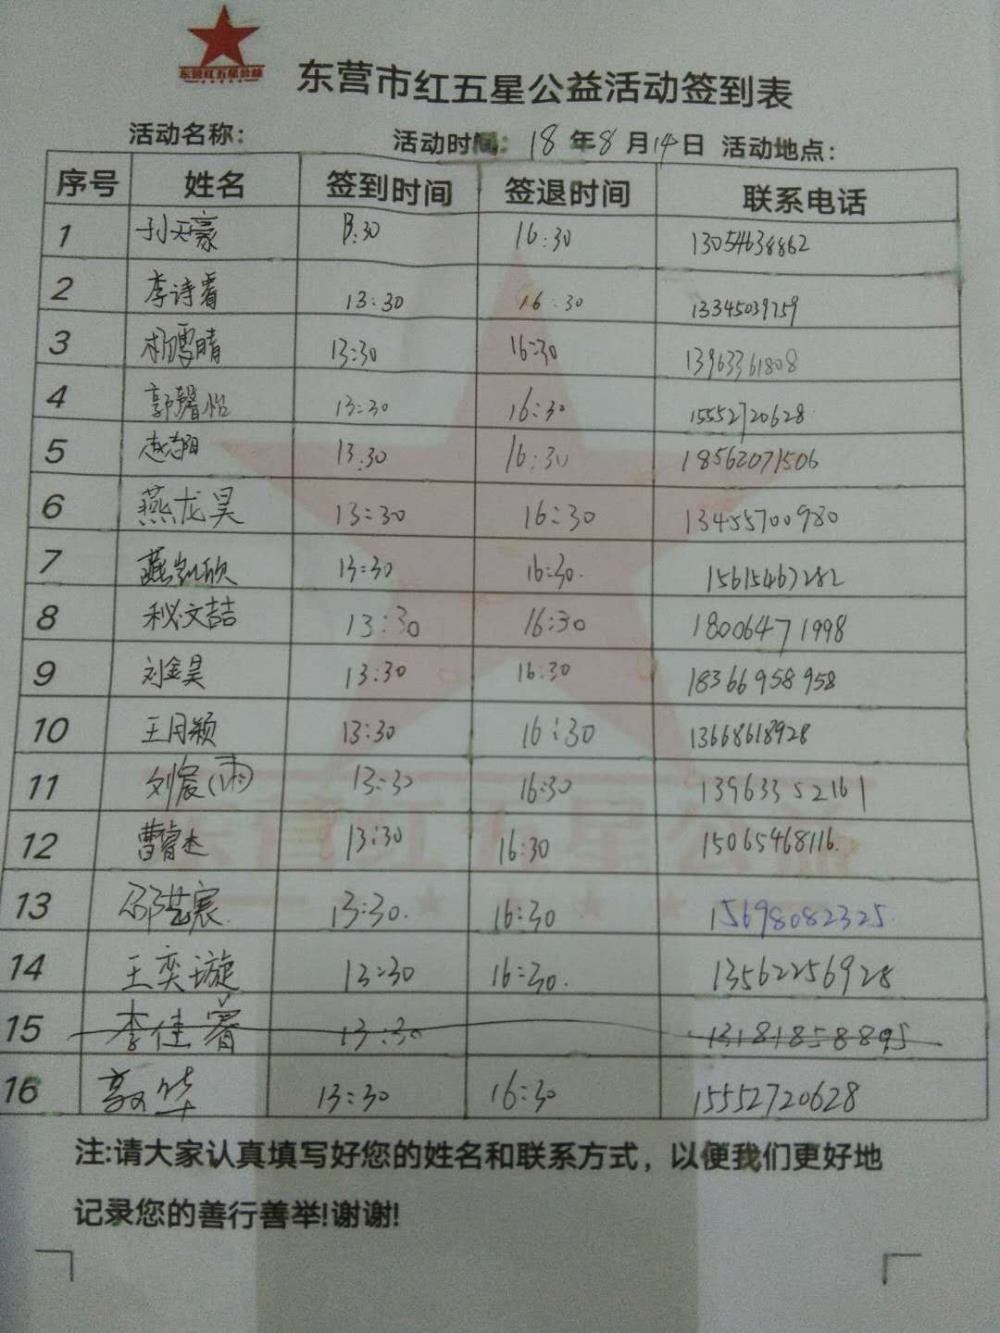 东营红五星公益
东营市红五星公益活动签到表
活动名称: 活动时间: 18 年 8 月 14 日 活动地点:
序号 姓名 签到时间 签退时间 联系电话
1 孙天豪 13:30 16:30 13054638862
2 李诗睿 13:30 16:30 13345039759
3 杨雪晴 13:30 16:30 13963361808
4 郭馨怡 13:30 16:30 15552720628
5 赵翱 13:30 16:30 18562071506
6 燕龙昊 13:30 16:30 13455700980
7 燕凯欣 13:30 16:30. 15615467282
8 秘文喆 13:30 16:30 18006471998
9 刘金昊 13:30 16:30 18366958958
10 王月颖 13:30 16:30 13668618928
11 刘宸(雨) 13:30 16:30 13963352161
12 曹睿杰 13:30 16:30 15065468116.
13 邵艺宸. 13:30. 16:30 15698082325
14 王奕璇 13:30 16:30. 13562256928
15 李佳睿 13:30 13181858895
16 郭华 13:30 16:30 15552720628
东营红五星公益
注:请大家认真填写好您的姓名和联系方式，以便我们更好地
记录您的善行善举!谢谢!